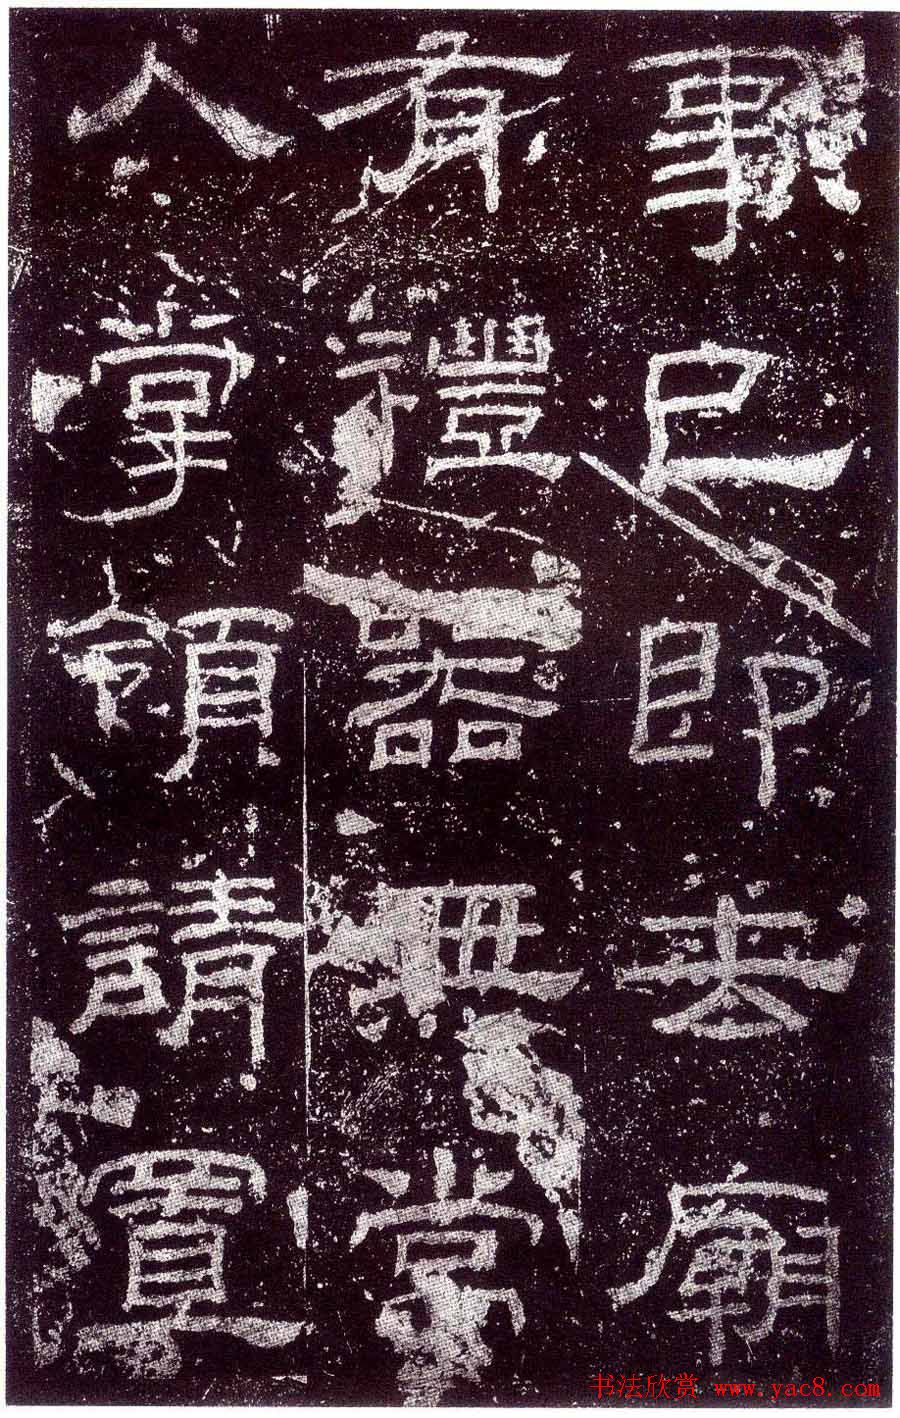 事已即去廟
有禮器無常
人掌領請置
书法欣赏 www.yac8.com